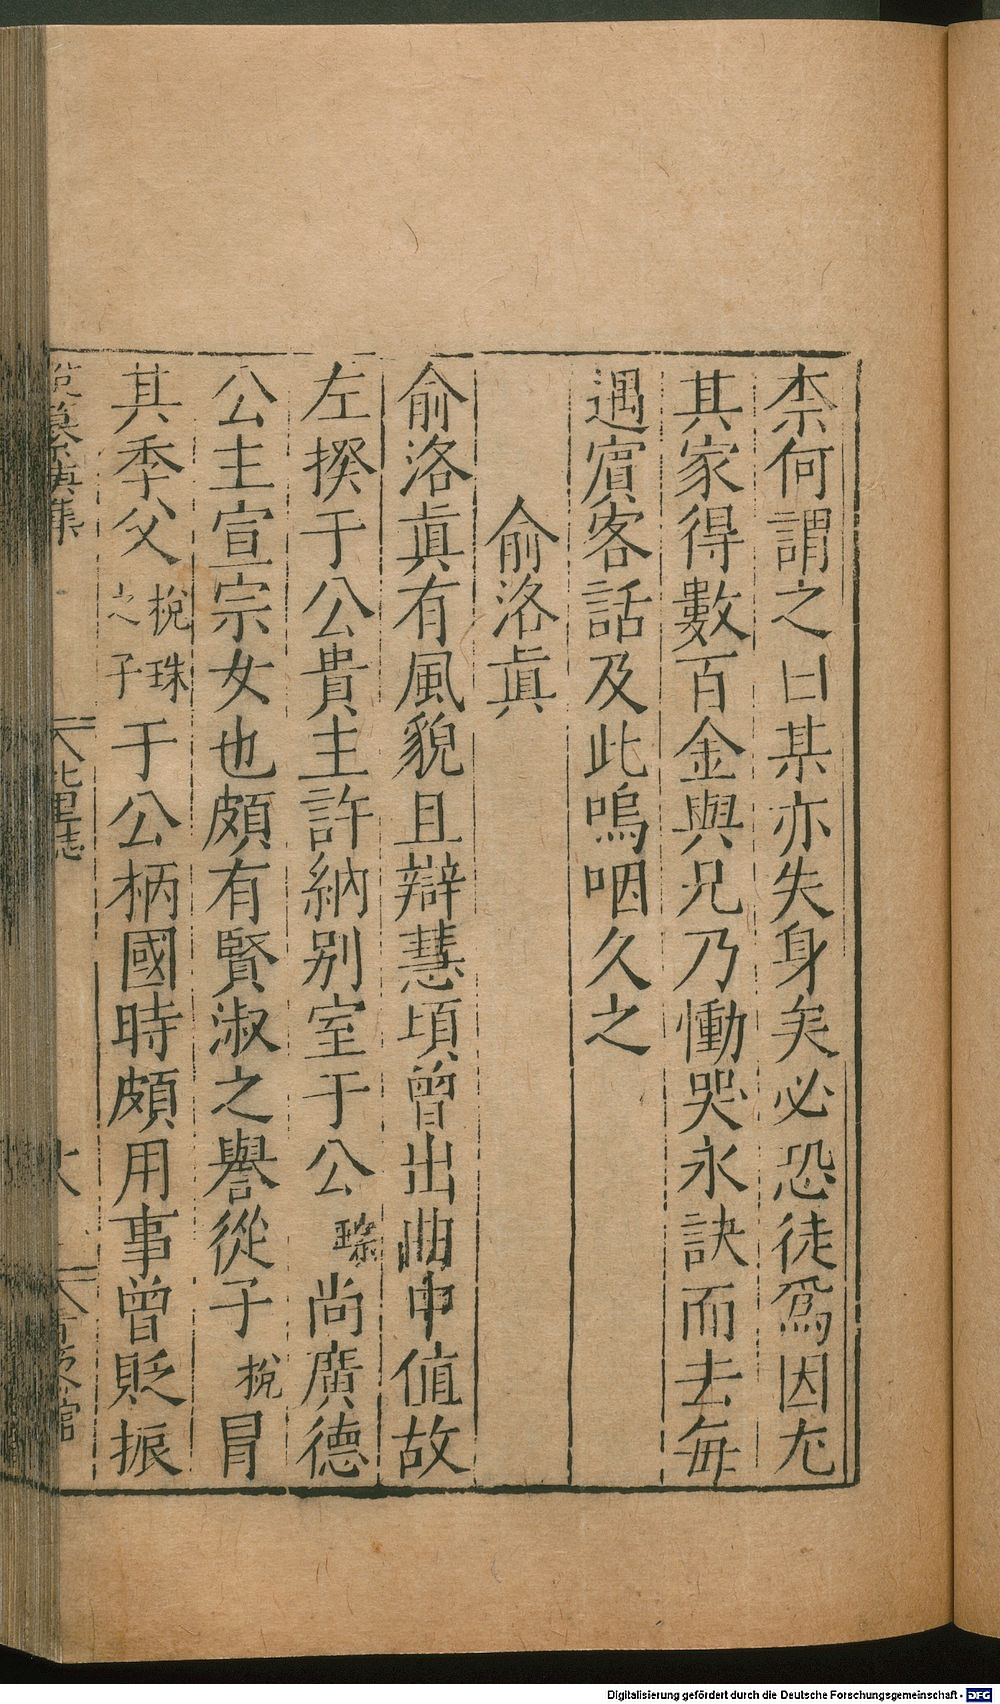 柰何謂之曰某亦失身矣必恐徒爲因尤
其家得數百金與兄乃慟哭永訣而去每
遇賔客話及此嗚咽久之
俞洛眞
俞洛眞有風貌且辯慧頃曾出曲中值故
左揆于公貴主許納别室于公琮尚廣德
公主宣宗女也頗有賢淑之譽從子梲冒
其季父梲珠之子于公柄國時頗用事曾貶振
北里志
Digitalisierung gefördert durch die Deutsche Forschungsgemeinschaft - DFG